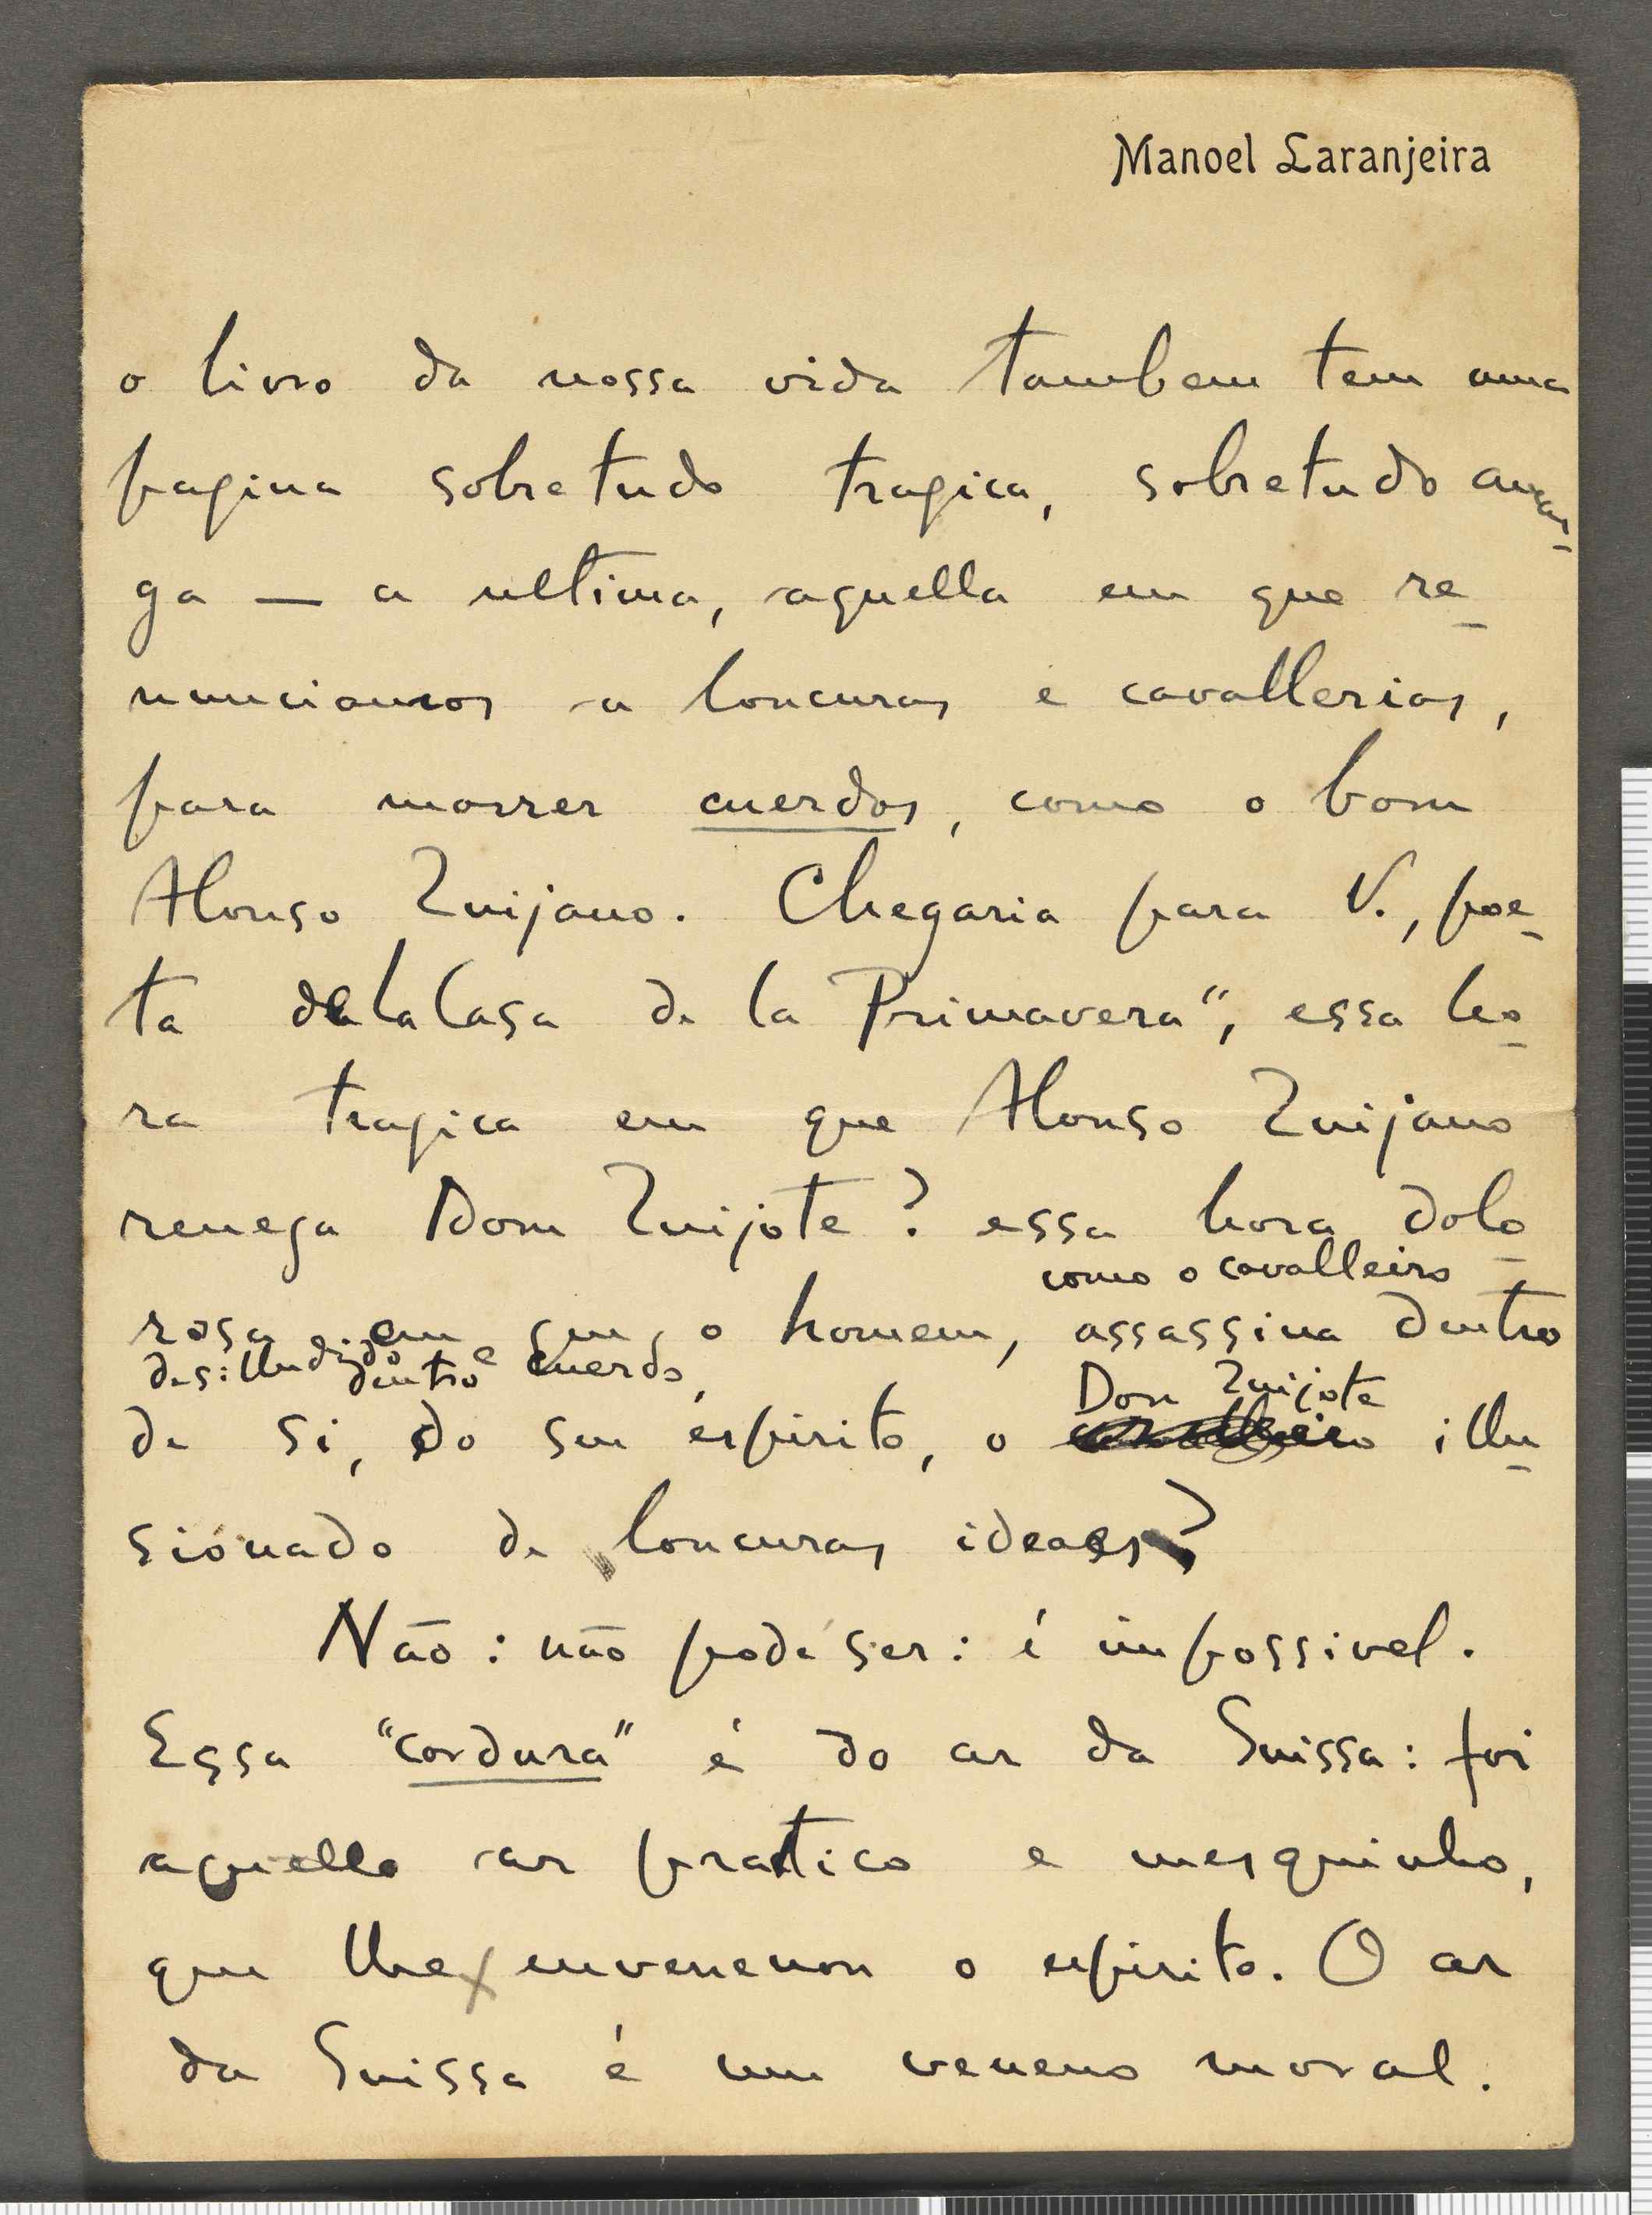 Manoel Laranjeira
o livro da nossa vida tambem tem uma
pagina sobretudo tragica, sobretudo amar-
ga — a ultima, aquella em que re-
nunciamos a loucuras e cavallerias,
para morrer cuerdos, como o bom
Alonso Quijano. Chegaria para V., poe-
ta de la Casa de la Primavera", essa ho-
ra tragica em que Alonso Quijano
renega Dom Quijote? essa hora dolo-
como o cavalleiro
rosa em que o homem, assassina dentro
desilludido e cuerdo,
dentro
de si, do seu espirito, o
Don Quijote
cavalleiro illu-
sionado de loucuras ideaes?
Não: não pode ser: é impossivel.
Essa "cordura" é do ar da Suissa: foi
aquelle ar pratico e mesquinho,
que lhe envenenou o espirito. O ar
da Suissa é um veneno moral.